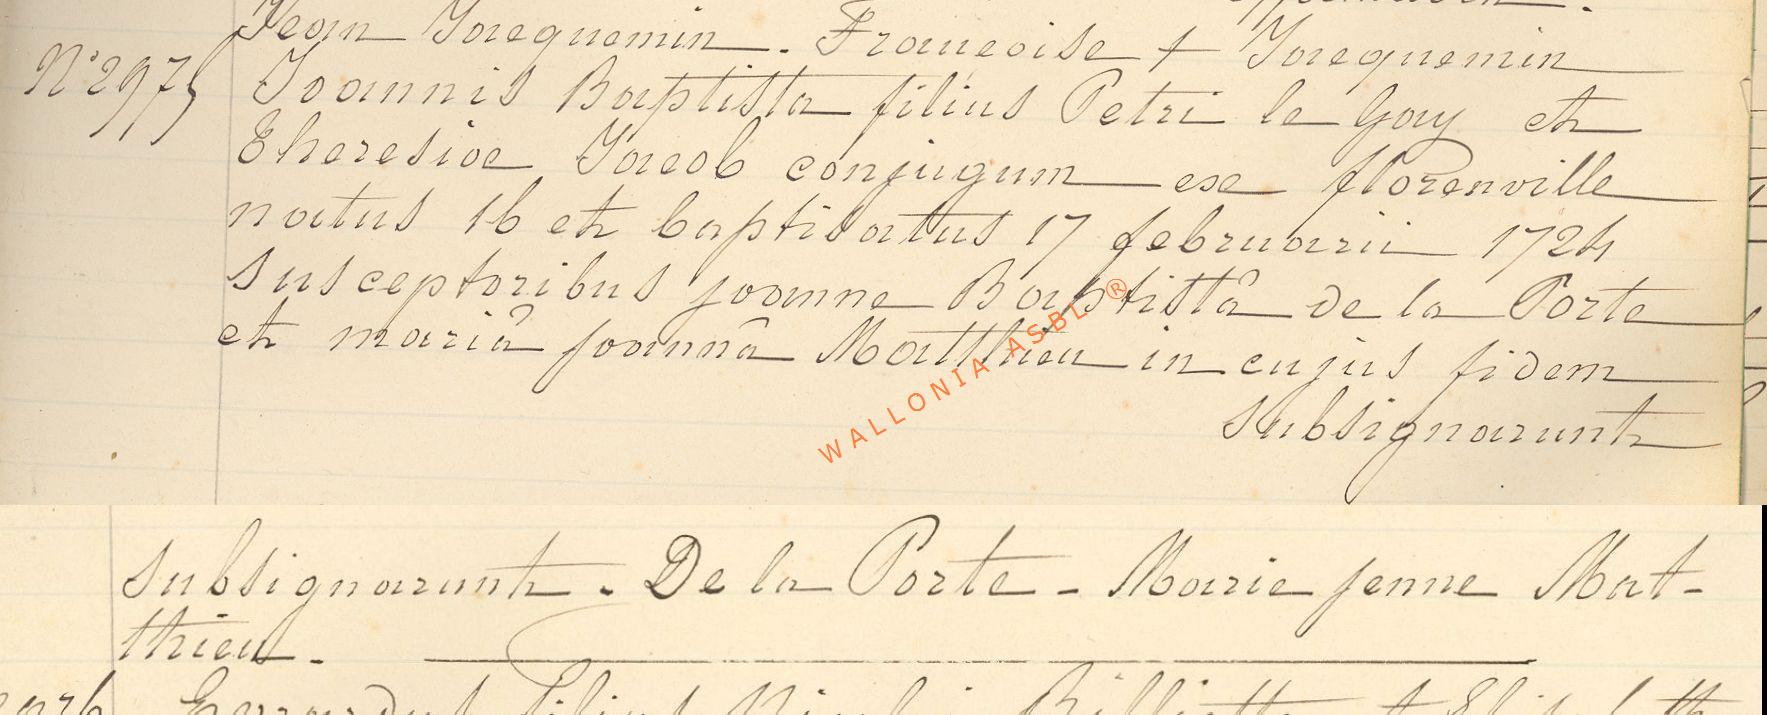 Jean Jacquemin. Francoise + Jacquemin
N° 2975 Joannis Baptista filius Petri le Gay et
Theresiae Jacob conjugum ex florenville
natus 16 et baptisatus 17 februarii 1724
susceptoribus joanne Baptistâ de la Porte
et mariâ joannâ Matthieu in cujus fidem
subsignarunt
WALLONIA ASBL ®
subsignarunt. De la Porte - Marie jenne Mat-
thieu.
Gerardus filius